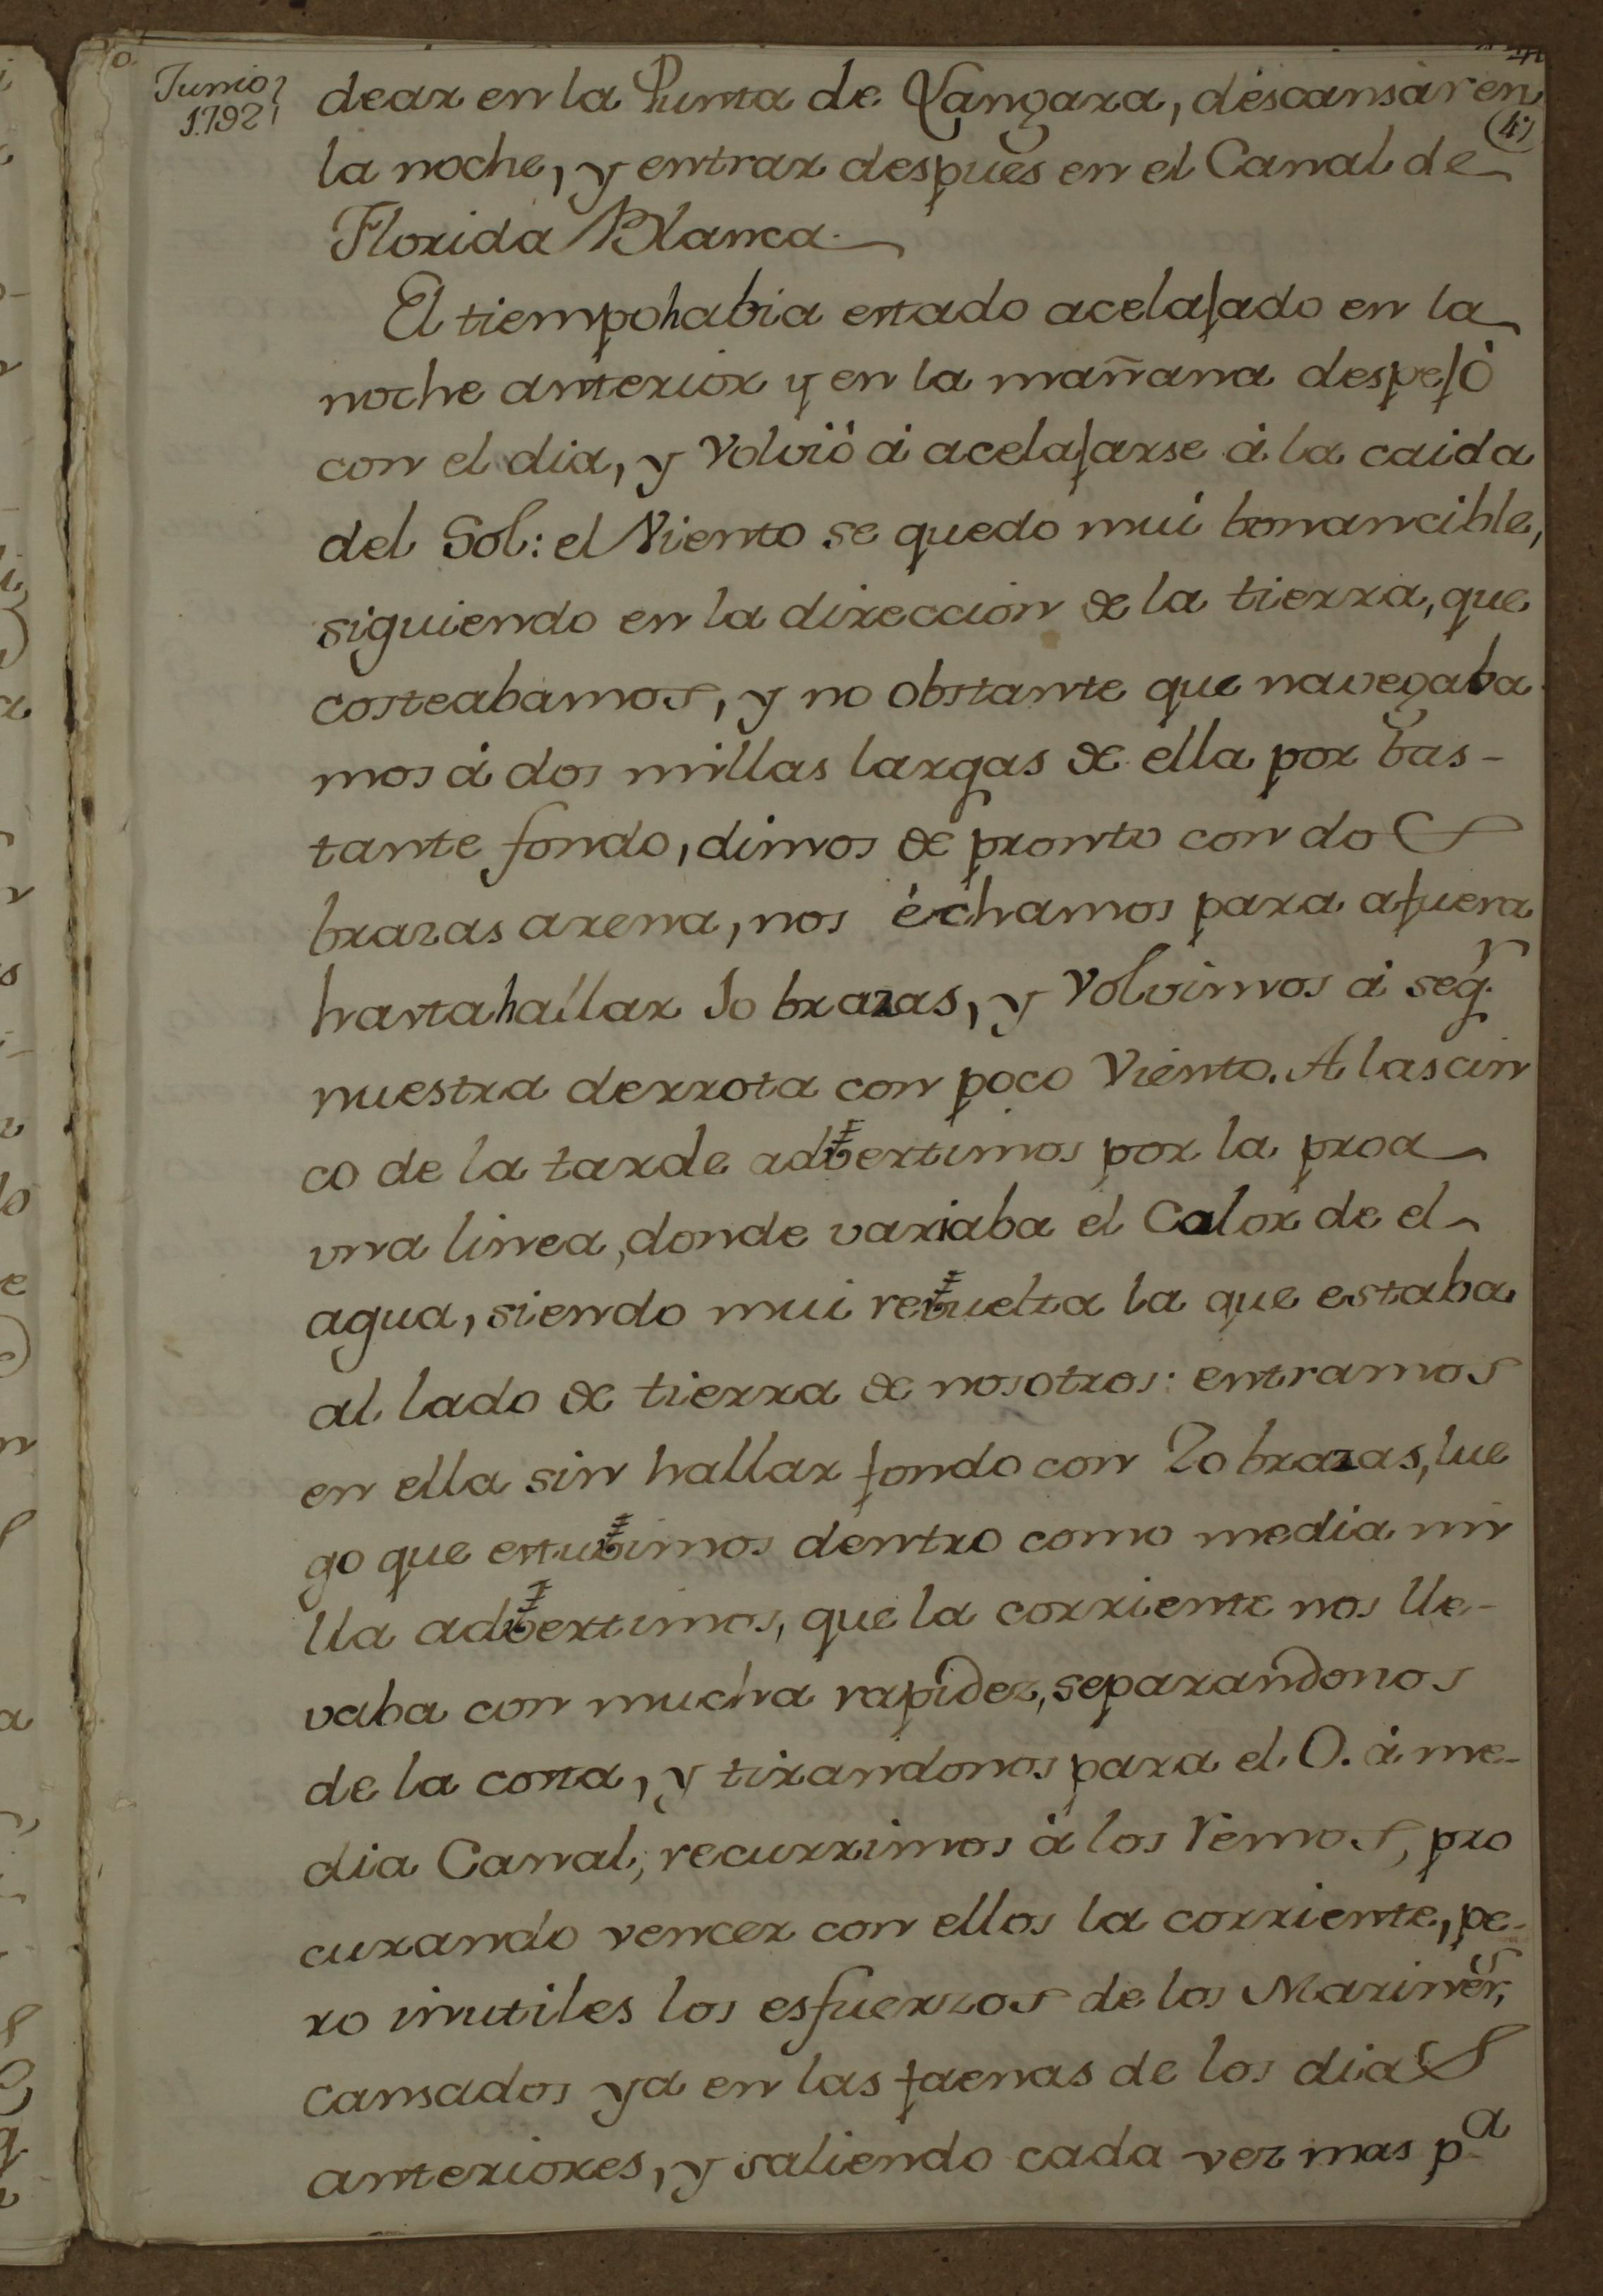 Junio
1792
dear en la Punta de Langara, descansar en
la noche, y entrar despues en el Canal de
Florida Blanca.
El tiempo habia estado acelajado en la
noche anterior y en la mañana despejó
con el dia, y volvió á acelajarse á la caida
del Sol: el Viento se quedo mui bonancible,
siguiendo en la direccion de la tierra, que
costeabamos, y no obstante que navegaba
mos á dos millas largas de ella por bas-
tante fondo, dimos de pronto con dos
brazas arena, nos échamos para afuera
hasta hallar 10 brazas, y volvimos á seg.r
nuestra derrota con poco Viento. A las cin
co de la tarde advertimos por la proa
una linea, donde variaba el Calor de el
agua, siendo mui revuelta la que estaba
al lado de tierra de nosotros: entramos
en ella sin hallar fondo con 20 brazas, lue
go que estuvimos dentro como media mi
lla advertimos, que la corriente nos lle-
vaba con mucha rapidez, separandonos
de la costa, y tirandonos para el O. á me-
dia Canal; recurrimos á los remos, pro
curando vencer con ellos la corriente, pe-
ro inutiles los esfuerzos de los Mariner.s,
cansados ya en las faenas de los dias
anteriores, y saliendo cada vez mas p.a